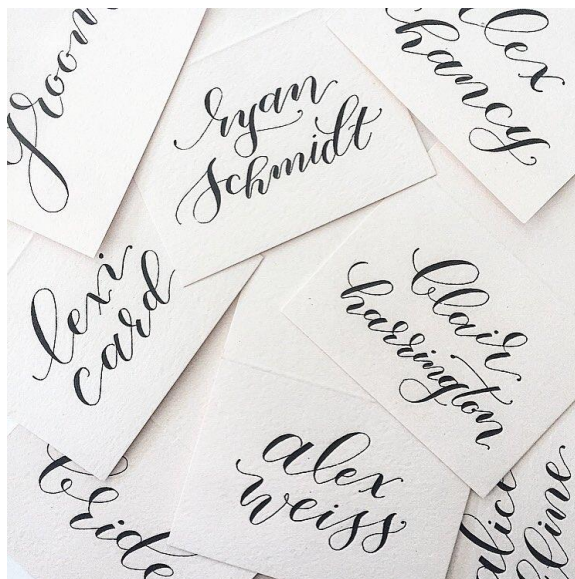 groom
ryan
schmidt
alex
hancy
lexi
card
blair
harrington
alex
weiss
bride